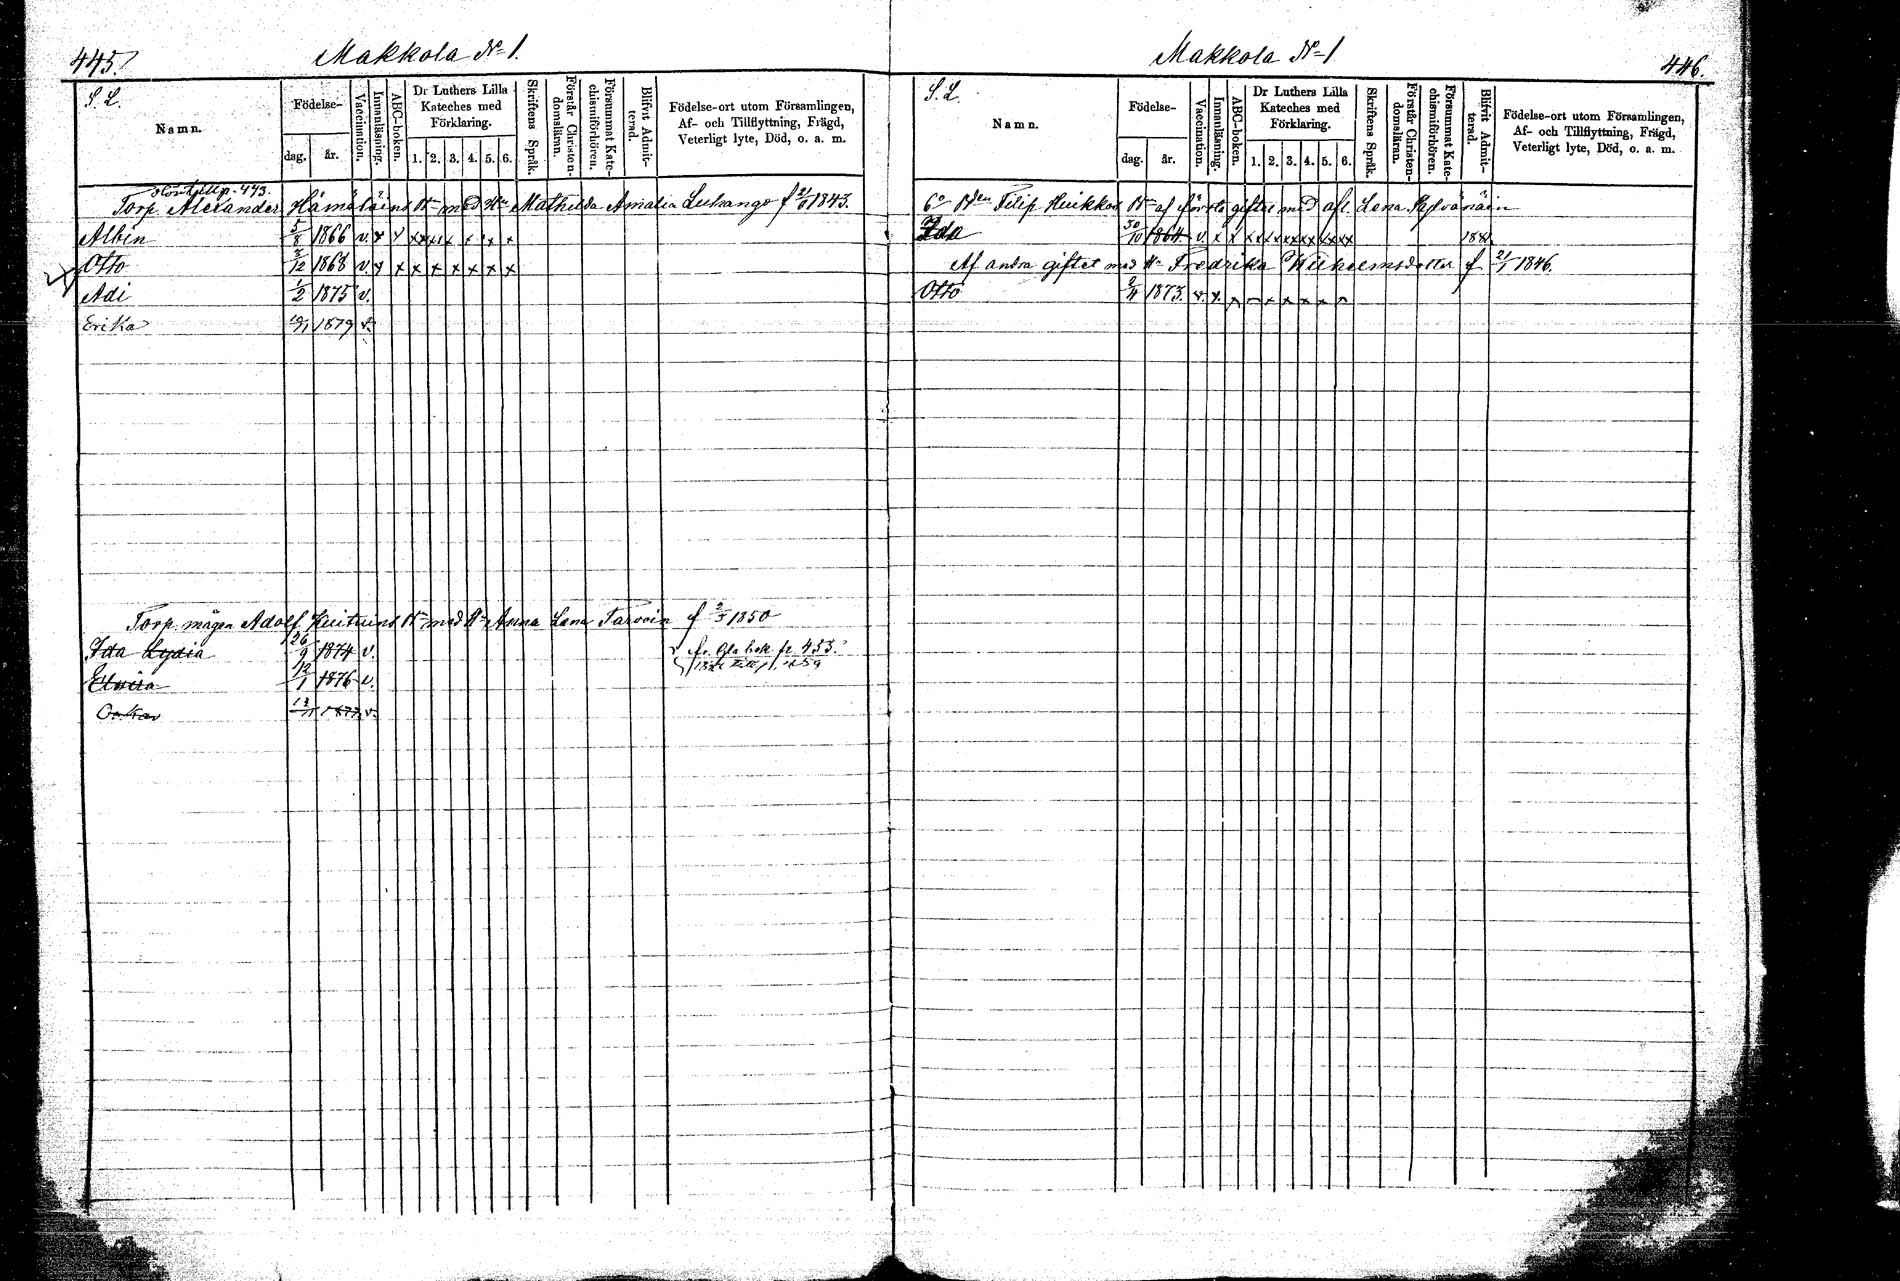 445.
Makkola No 1.
S. L.
Namn.
Födelse-
dag.
år.
Vaccination.
Innanläsning.
ABC-boken.
Dr Luthers Lilla
Kateches med
Förklaring.
1. 2. 3. 4. 5. 6.
Skriftens Språk.
Förstår Christen-
domslärnn.
Försummat Kate-
chismiförhören.
Blifvit Admit-
terad.
Födelse-ort utom Församlingen,
Af- och Tillflyttning, Frägd,
Veterligt lyte, Död, o. a. m.
p. 443.
Torp. Alexander Hämäläins Bn med Hu Mathilda Amalia Luhango f 1843.
Albin 5/8 1866 v. x x x x x x x x x
Otto 2/12 1868 v. x x x x x x x x
Adi 1/2 1875 v.
Erika 1879 v.
Torp. mågen Adolf Huitins Bn med Hu Anna Lena Tarvain f 2/3 1850
Ida Lydia 26/9 1874 v. 453
Elvira 12/1 1876 v. 1259
Oskar 1877 v.
446.
Makkola No 1
S. L.
Namn.
Födelse-
dag.
år.
Vaccination.
Innanläsning.
ABC-boken.
Dr Luthers Lilla
Kateches med
Förklaring.
1. 2. 3. 4. 5. 6.
Skriftens Språk.
Förstår Christen-
domsläran.
Försummat Kate-
chismiförhören.
Blifvit Admit-
terad.
Födelse-ort utom Församlingen,
Af- och Tillflyttning, Frägd,
Veterligt lyte, Död, o. a. m.
Filip Huikkos Bn af första giftet med afl. Lena Pylvänäin
Ida 30/10 1864 v. x x x x x x x x x x x x 1881
Af andra giftet med Hu Fredrika Wilhelmsdotter f 21/1 1846.
Otto 2/4 1873. v. x. x x x x